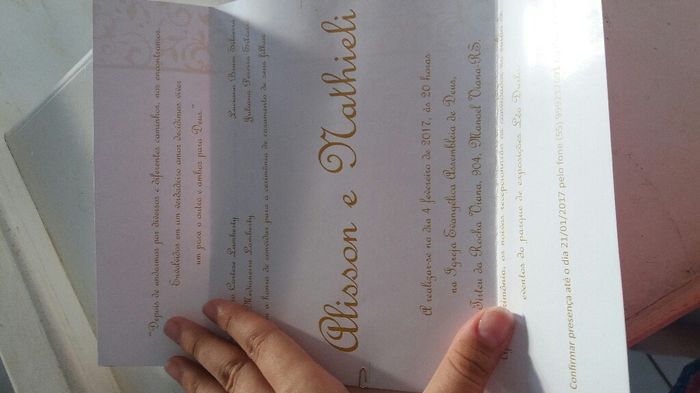 "Depois de andarmos por diversos e diferentes caminhos, nos encontramos.
Envolvidos em um verdadeiro amor decidimos viver
um para o outro e ambos para Deus."
Cortese Lamberty
Lamberty
Luciano
Juliana Pereira
a honra de convidar para a cerimônia de casamento de seus filhos
Alisson e Nathieli
A realizar-se no dia 4 fevereiro de 2017, às 20 horas
na Igreja Evangélica Assembleia de Deus,
da Rocha Viana, 904, Manoel Viana-RS.
os noivos recepcionarão os convidados
eventos do parque de exposições
Confirmar presença até o dia 21/01/2017 pelo fone (55)